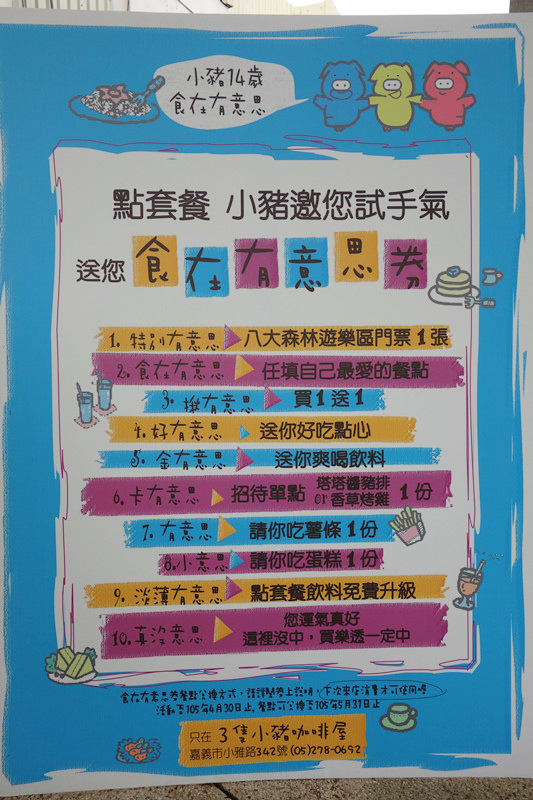 小豬14歲
食在有意思
點套餐 小豬邀您試手氣
送您 食在有意思券
1. 特別有意思 八大森林遊樂區門票1張
2. 食在有意思 任填自己最愛的餐點
3. 揪有意思 買1送1
4. 好有意思 送你好吃點心
5. 金有意思 送你爽喝飲料
6. 卡有意思 招待單點 塔塔醬豬排 or 香草烤雞 1份
7. 有意思 請你吃薯條1份
8. 小意思 請你吃蛋糕1份
9. 淡薄有意思 點套餐飲料免費升級
10. 真沒意思 您運氣真好
這裡沒中,買樂透一定中
食在有意思券餐點兌換方式,請詳閱券上說明,下次來店消費才可使用唷
活動至105年4月30日止,餐點可兌換至105年5月31日止
只在 3隻小豬咖啡屋
嘉義市小雅路342號 (05)278-0692